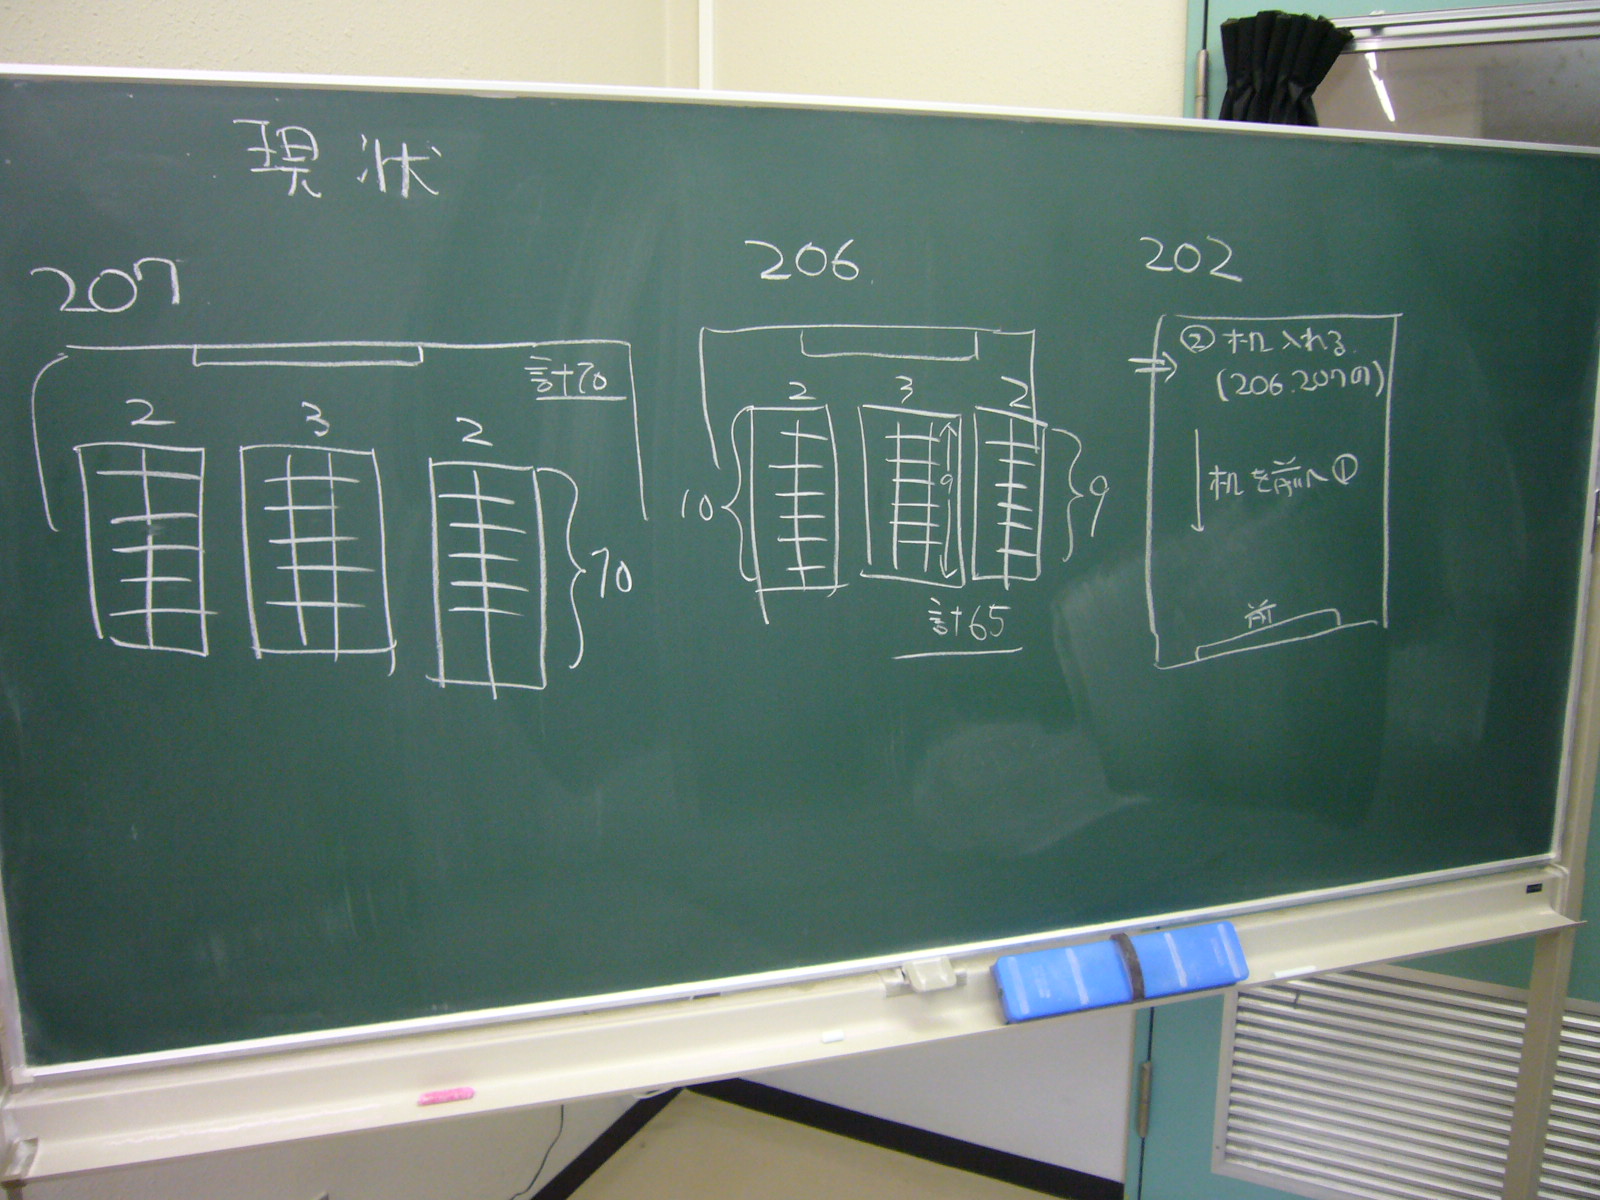 現状
207
計70
2
3
2
70
206
2
3
2
10
9
9
計65
202
② 机入れる
(206.207の)
机を前へ①
前